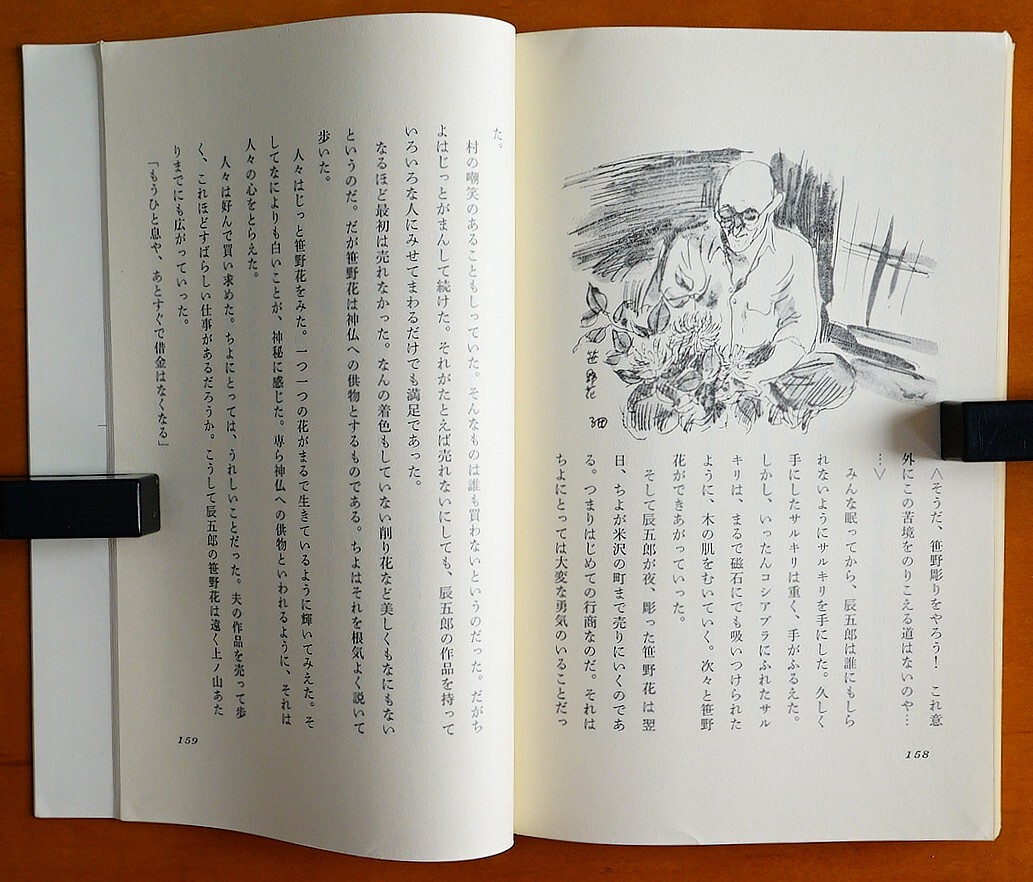 ＜そうだ、笹野彫りをやろう！　これ意
外にこの苦境をのりこえる道はないのや…
…＞
みんな眠ってから、辰五郎は誰にもしら
れないようにサルキリを手にした。久しく
手にしたサルキリは重く、手がふるえた。
しかし、いったんコシアブラにふれたサル
キリは、まるで磁石にでも吸いつけられた
ように、木の肌をむいていく。次々と笹野
花ができあがっていった。
そして辰五郎が夜、彫った笹野花は翌
日、ちよが米沢の町まで売りにいくのであ
る。つまりはじめての行商なのだ。それは
ちよにとっては大変な勇気のいることだっ
笹野花
158
た。
村の嘲笑のあることもしっていた。そんなものは誰も買わないというのだった。だがち
よはじっとがまんして続けた。それがたとえば売れないにしても、辰五郎の作品を持って
いろいろな人にみせてまわるだけでも満足であった。
なるほど最初は売れなかった。なんの着色もしていない削り花など美しくもなにもない
というのだ。だが笹野花は神仏への供物とするものである。ちよはそれを根気よく説いて
歩いた。
人々はじっと笹野花をみた。一つ一つの花がまるで生きているように輝いてみえた。そ
してなによりも白いことが、神秘に感じた。専ら神仏への供物といわれるように、それは
人々の心をとらえた。
人々は好んで買い求めた。ちよにとっては、うれしいことだった。夫の作品を売って歩
く、これほどすばらしい仕事があるだろうか。こうして辰五郎の笹野花は遠く上ノ山あた
りまでにも広がっていった。
「もうひと息や、あとすぐで借金はなくなる」
159